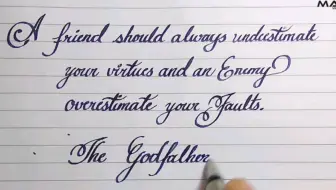 MA
A friend should always underestimate
your virtues and an Enemy
overestimate your Faults.
The Godfather